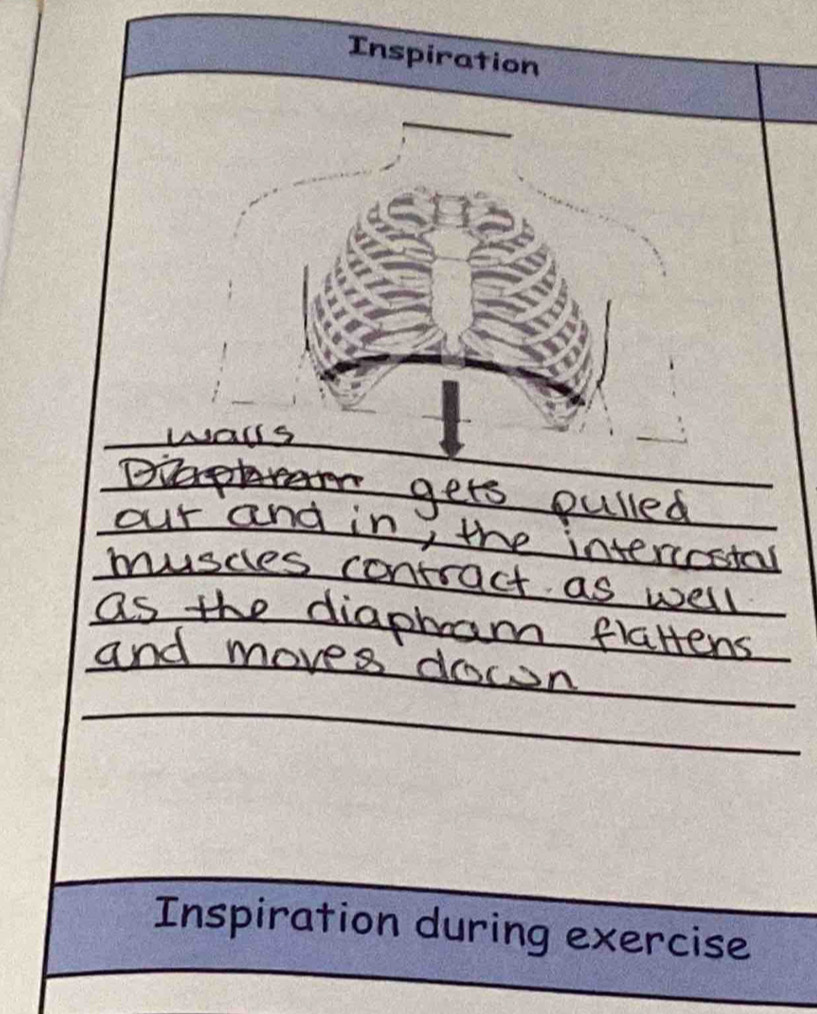 Inspiration
walls
Diaphram gets pulled
out and in, the intercostal
muscles contract as well
as the diaphram flattens
and moves down
Inspiration during exercise